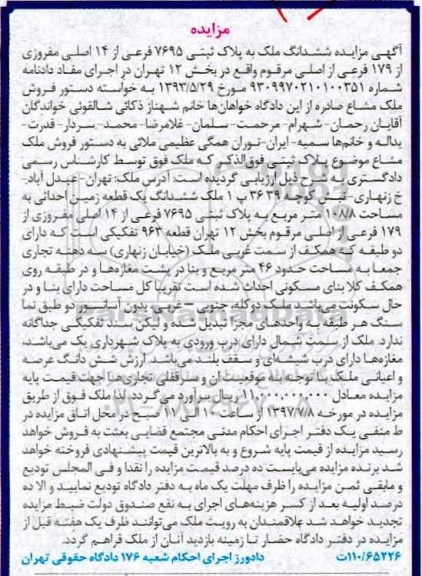 مزایده
آگهی مزایده ششدانگ ملک به پلاک ثبتی ۷۶۹۵ فرعی از ۱۴ اصلی مفروزی
از ۱۷۹ فرعی از اصلی مرقوم واقع در بخش ۱۲ تهران در اجرای مفاد دادنامه
شماره ۹۳۰۹۹۷۰۲۱۰۱۰۰۳۵۱ مورخ ۱۳۹۳/۵/۲۹ به خواسته دستور فروش
ملک مشاع صادره از این دادگاه خواهان‌ها خانم شهناز ذکائی شالقونی خواندگان
آقایان رحمان-شهرام- مرحمت-سلمان- غلامرضا- محمد-سردار- قدرت-
یداله و خانم‌ها سمیه- ایران-توران همگی عظیمی ملائی به دستور فروش ملک
مشاع موضوع پلاک ثبتی فوق‌الذکر که ملک فوق توسط کارشناس رسمی
دادگستری به شرح ذیل ارزیابی گردیده است: آدرس ملک: تهران-عبدل آباد-
خ زنهاری-نبش کوچه ۳۹ ۳۶ پ ۱ ملک ششدانگ یک قطعه زمین احداثی به
مساحت ۱۰۸/۸ متر مربع به پلاک ثبتی ۷۶۹۵ فرعی از ۱۴ اصلی مفروزی از
۱۷۹ فرعی از اصلی مرقوم بخش ۱۲ تهران قطعه ۹۶۳ تفکیکی است که دارای
دو طبقه که همکف از سمت غربی ملک (خیابان زنهاری) سه دهنه تجاری
جمعا به مساحت حدود ۴۶ متر مربع و بنا در پشت مغازه‌ها و در طبقه روی
همکف کلا بنای مسکونی احداث شده است تقریبا کل مساحت دارای بنا و در
حال سکونت می‌باشد ملک دوکله، جنوبی – غربی، بدون آسانسور دو طبق نما
سنگ هر طبقه به واحدهای مجزا تبدیل شده و لیکن سند تفکیکی جداگانه
ندارد. ملک از سمت شمال دارای درب ورودی به پلاک شهرداری یک می‌باشد،
مغازه‌ها دارای درب شیشه‌ای و سقف بلند می‌باشد. ارزش شش دانگ عرصه
و اعیانی ملک با توجه به موقعیت آن و سرقفلی تجاری‌ها جهت قیمت پایه
مزایده معادل ۱۱،۰۰۰،۰۰۰،۰۰۰ ریال برآورد می‌گردد. لذا ملک فوق از طریق
مزایده در مورخه ۱۳۹۷/۷/۸ از ساعت ۱۰ الی ۱۱ صبح در محل اتاق مزایده در
ط منفی یک دفتر اجرای احکام مدنی مجتمع قضایی بعثت به فروش خواهد
رسید مزایده از قیمت پایه شروع و به بالاترین قیمت پیشنهادی فروخته خواهد
شد برنده مزایده می‌بایست ده درصد قیمت مزایده را نقدا و فی المجلس تودیع
و مابقی ثمن مزایده را ظرف مهلت یک ماه به دفتر دادگاه تودیع نمایید و الا ده
درصد اولیه بعد از کسر هزینه‌های اجرای به نفع صندوق دولت ضبط مزایده
تجدید خواهد شد علاقمندان به رویت ملک می‌توانند ظرف یک هفته قبل از
مزایده در دفتر دادگاه حضار تا زمینه بازدید آنان از ملک فراهم گردد.
۱۱۰/۶۵۲۲۶ت دادورز اجرای احکام شعبه ۱۷۶ دادگاه حقوقی تهران